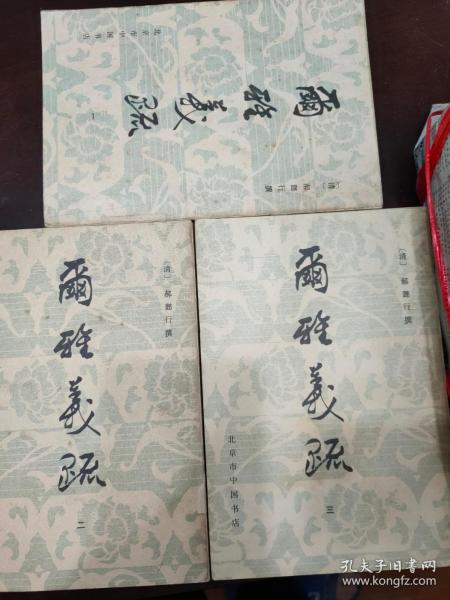 爾雅義疏
一
〔清〕郝懿行撰
北京市中国书店
〔清〕郝懿行撰
爾雅義疏
二
〔清〕郝懿行撰
爾雅義疏
三
北京市中国书店
孔夫子旧书网
www.kongfz.com